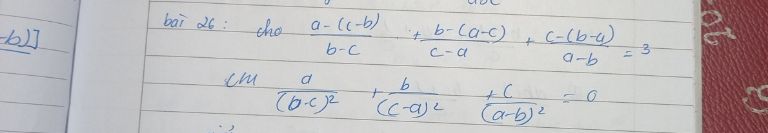 bài 26 : cho \frac{a-(c-b)}{b-c} + \frac{b-(a-c)}{c-a} + \frac{c-(b-a)}{a-b} = 3
-b)]
cm \frac{a}{(b-c)^2} + \frac{b}{(c-a)^2} + \frac{c}{(a-b)^2} = 0